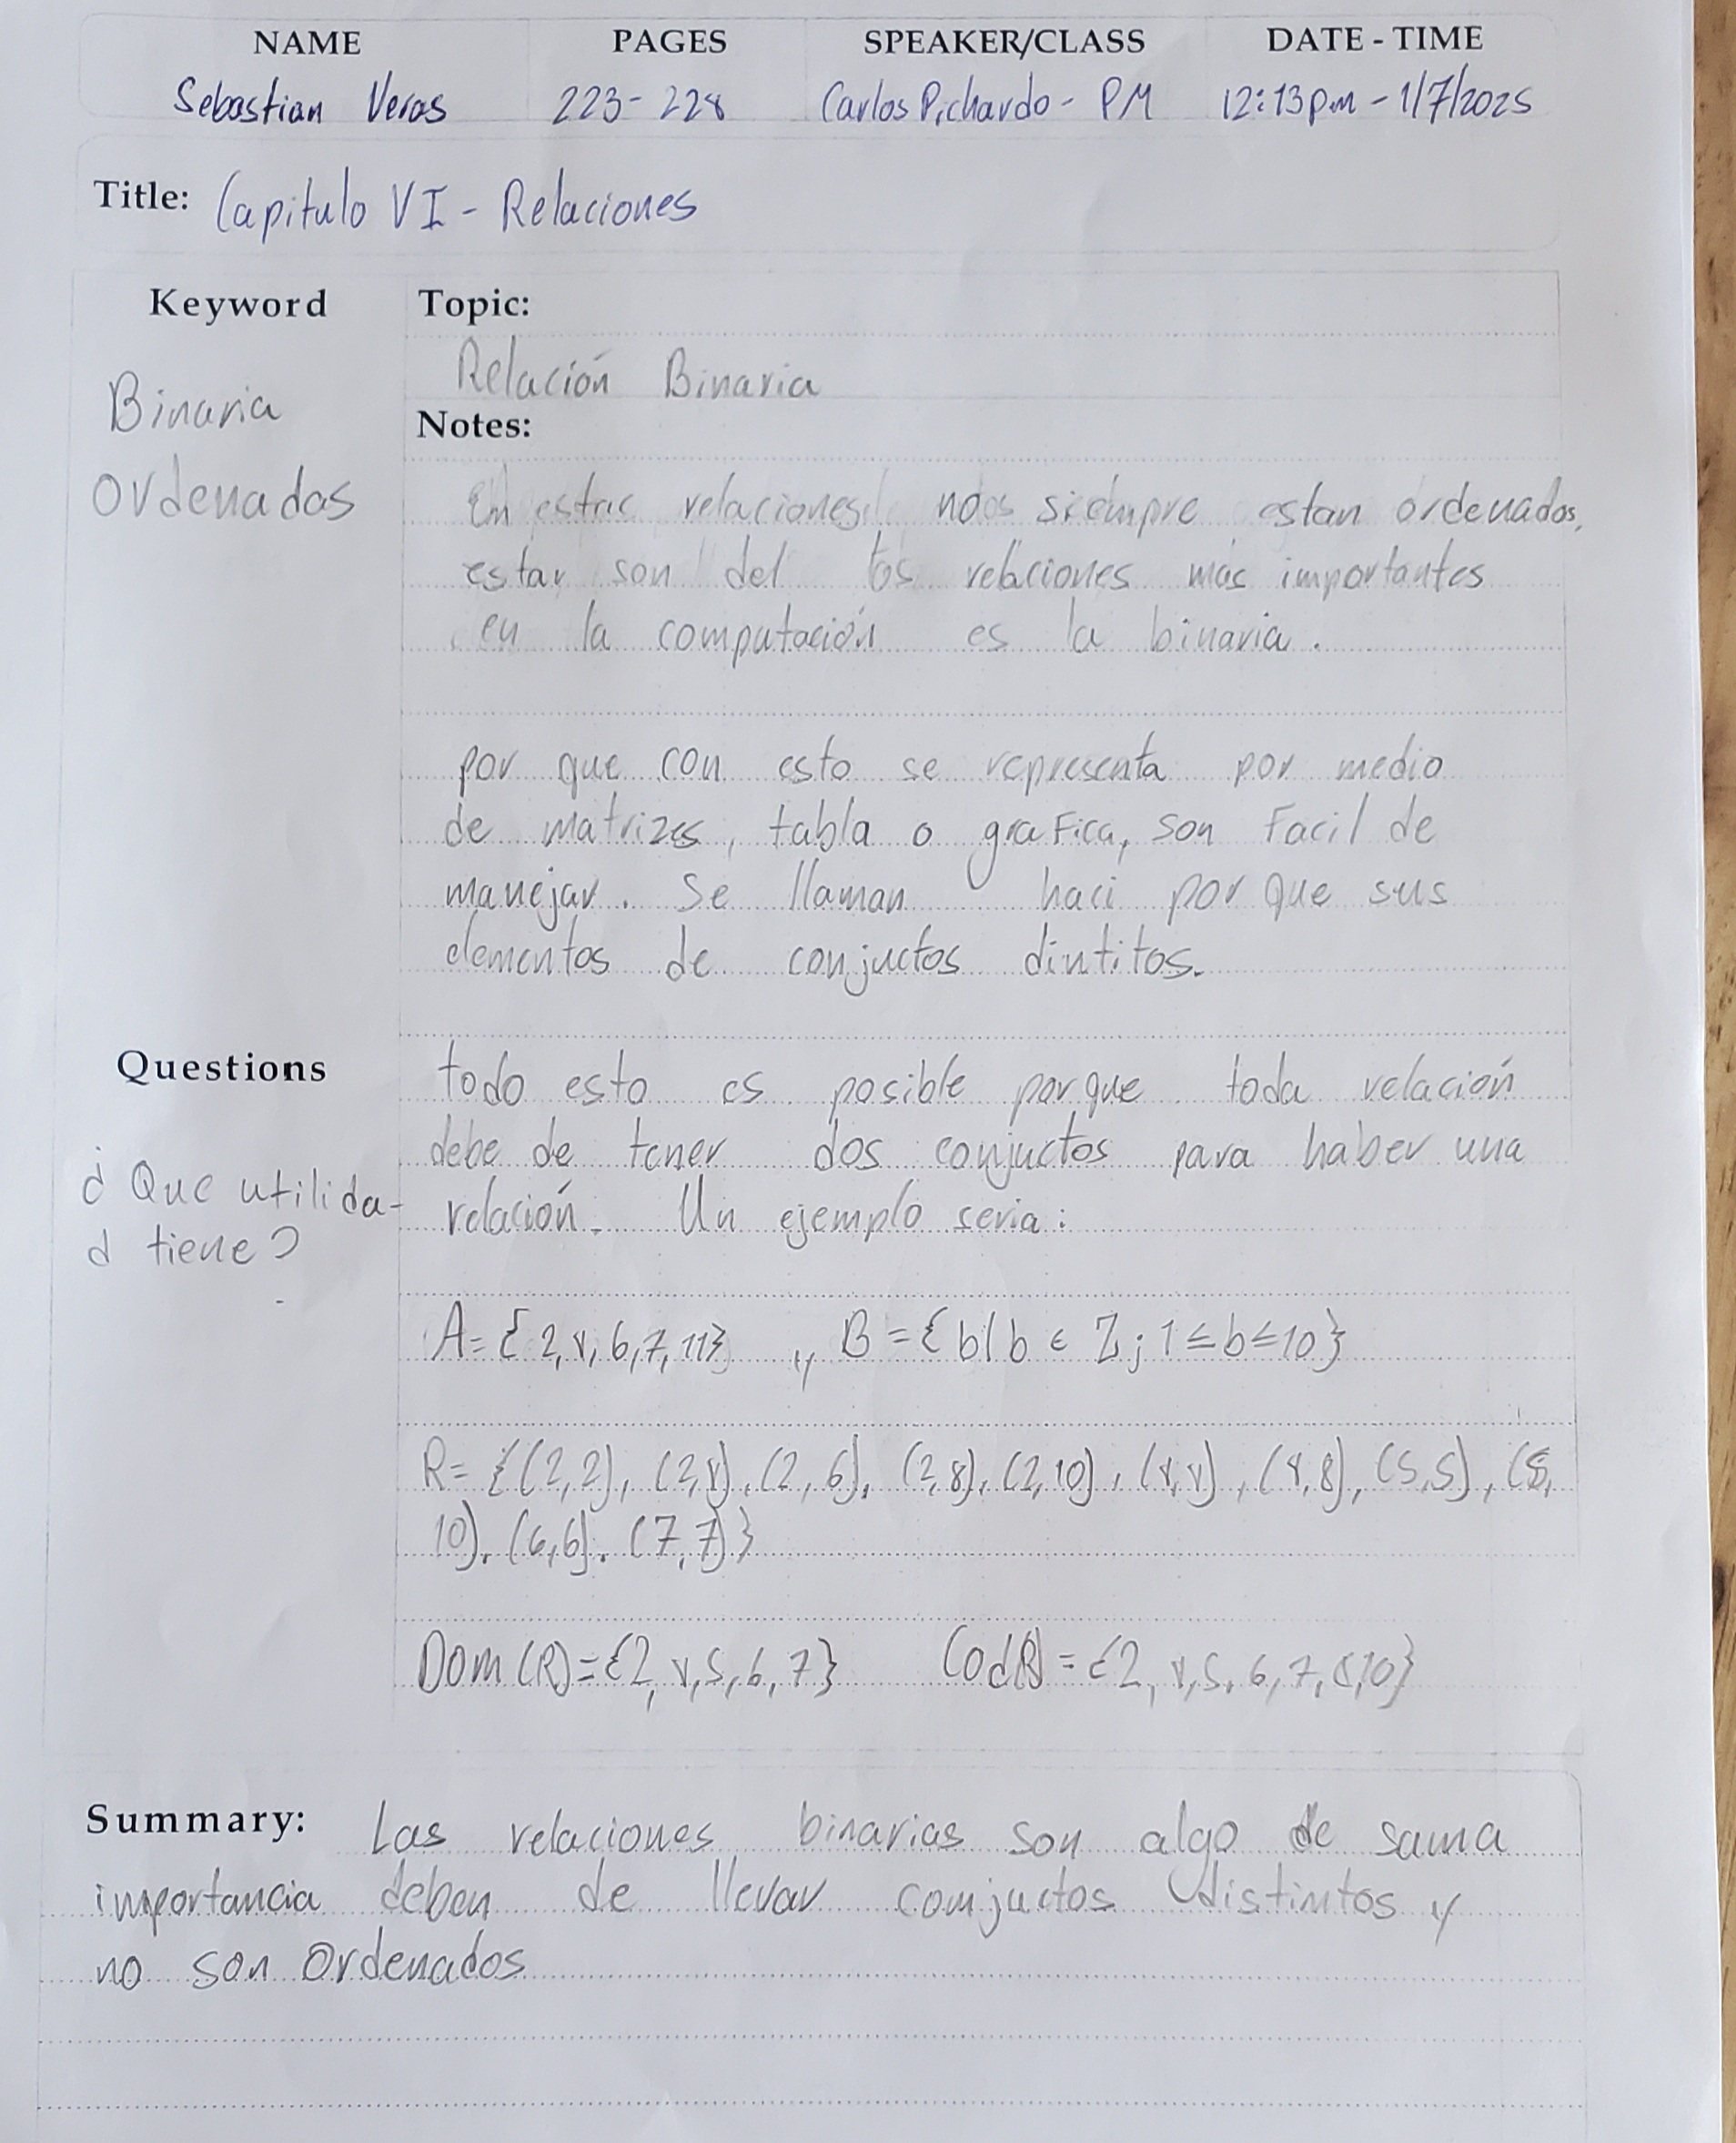 NAME PAGES SPEAKER/CLASS DATE - TIME
Sebastian Veras 223-228 Carlos Pichardo - PM 12:13pm - 1/7/2025
Title: Capitulo VI - Relaciones
Keyword Topic:
Relación Binaria
Binaria
Notes:
Ordenados
En estas relaciones nos siempre estan ordenados,
estar son del los relaciones mas importantes
en la computación es la binaria.
por que con esto se representa por medio
de matrizes, tabla o grafica, son facil de
manejar. Se llaman haci por que sus
elementos de conjuctos dintitos.
Questions
todo esto es posible por que toda relación
debe de tener dos conjuctos para haber una
¿Que utilida-
relación. Un ejemplo seria:
d tiene?
A= {2,4,6,7,11} y B = {b|b ∈ Z; 1≤b≤10}
R= {(2,2), (2,4), (2,6), (2,8), (2,10), (4,4), (4,8), (5,5), (5,
10), (6,6), (7,7)}
Dom (R)={2,4,5,6,7} Cod(R) = {2,4,5,6,7,8,10}
Summary: Las relaciones binarias son algo de sama
importancia deben de llevar comjuctos distimtos y
no son Ordenados